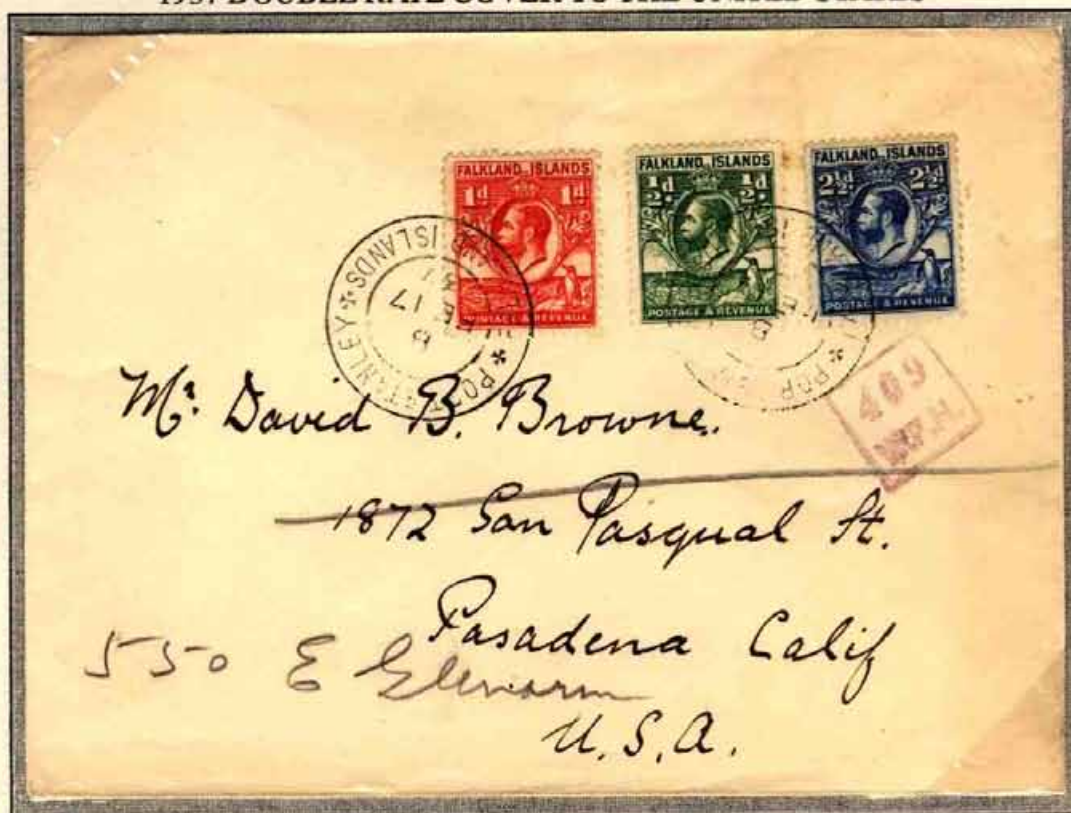 1937 DOUBLE RATE COVER TO THE UNITED STATES
FALKLAND ISLANDS
1d 1d
POSTAGE & REVENUE
FALKLAND ISLANDS
½d ½d
POSTAGE & REVENUE
FALKLAND ISLANDS
2½d 2½d
POSTAGE & REVENUE
PORT STANLEY
ISLANDS
17
FE
37
409
Mr. David B. Browne.
1872 San Pasqual St.
Pasadena Calif
550 E Glenarm
U.S.A.